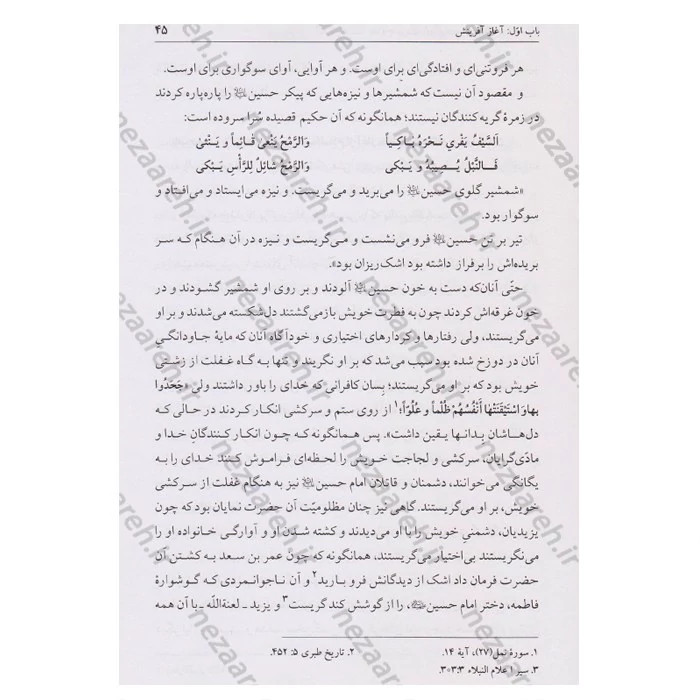 باب اوّل: آغاز آفرینش ۴۵
هر فروتنی‌ای و افتادگی‌ای برای اوست. و هر آوایی، آوای سوگواری برای اوست.
و مقصود آن نیست که شمشیرها و نیزه‌هایی که پیکر حسین علیه السلام را پاره‌پاره کردند
در زمرهٔ گریه کنندگان نیستند؛ همانگونه که آن حکیم قصیده سُرا سروده است:
اَلسَّیْفُ یَفْرِي نَحْرَهُ بَاکِیاً وَالرُّمْحُ یَنْعیٰ قَائِماً وَ یَنْثَنیٰ
فَالنَّبْلُ یُصِیبُهُ وَ یَبْکی وَالرُّمْحُ شائِلٌ لِلرَّأْسِ یَبْکی
«شمشیر گلوی حسین علیه السلام را می‌برید و می‌گریست. و نیزه می‌ایستاد و می‌افتاد و
سوگوار بود.
تیر بر تن حسین علیه السلام فرو می‌نشست و می‌گریست و نیزه در آن هنگام که سر
بریده‌اش را برفراز داشته بود اشک‌ریزان بود».
حتّی آنان‌که دست به خون حسین علیه السلام آلودند و بر روی او شمشیر گشودند و در
خون غرقه‌اش کردند چون به فطرت خویش بازمی‌گشتند دل‌شکسته می‌شدند و بر او
می‌گریستند، ولی رفتارها و کردارهای اختیاری و خودآگاه آنان که مایهٔ جاودانگی
آنان در دوزخ شده بود سبب می‌شد که بر او نگریند و تنها به گاه غفلت از زشتی
خویش بود که بر او می‌گریستند؛ بِسان کافرانی که خدای را باور داشتند ولی «جَحَدُوا
بِها وَ اسْتَیْقَنَتْها أَنْفُسُهُمْ ظُلْماً و عُلُوّاً؛۱ از روی ستم و سرکشی انکار کردند در حالی که
دل‌هاشان بدانها یقین داشت». پس همانگونه که چون انکار کنندگانِ خدا و
مادّی‌گرایان، سرکشی و لجاجت خویش را لحظه‌ای فراموش کنند خدای را به
یگانگی می‌خوانند، دشمنان و قاتلان امام حسین علیه السلام نیز به هنگام غفلت از سرکشی
خویش، بر او می‌گریستند. گاهی نیز چنان مظلومیّت آن حضرت نمایان بود که چون
یزیدیان، دشمنیِ خویش را با او می‌دیدند و کشته شدن او و آوارگی خانواده او را
می‌نگریستند بی‌اختیار می‌گریستند، همانگونه که چون عمر بن سعد به کشتن آن
حضرت فرمان داد اشک از دیدگانش فرو بارید۲ و آن ناجوانمردی که گوشوارهٔ
فاطمه، دختر امام حسین علیه السلام، را از گوشش کند گریست۳ و یزید ـ لعنةاللّه ـ با آن همه
۱. سورهٔ نمل(۲۷)، آیهٔ ۱۴. ۲. تاریخ طبری ۵: ۴۵۲.
۳. سیر اعلام النبلاء ۳:۳۰۳.
nezaareh.ir